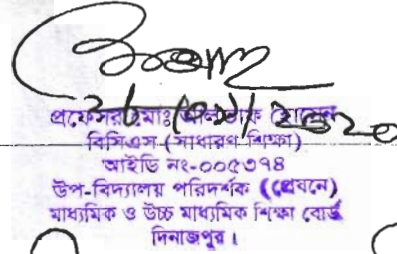 প্রফেসর মোঃ হোসেন
বিসিএস (সাধারণ শিক্ষা)
আইডি নং-০০৫৩৭৪
উপ-বিদ্যালয় পরিদর্শক (প্রেষনে)
মাধ্যমিক ও উচ্চ মাধ্যমিক শিক্ষা বোর্ড
দিনাজপুর।